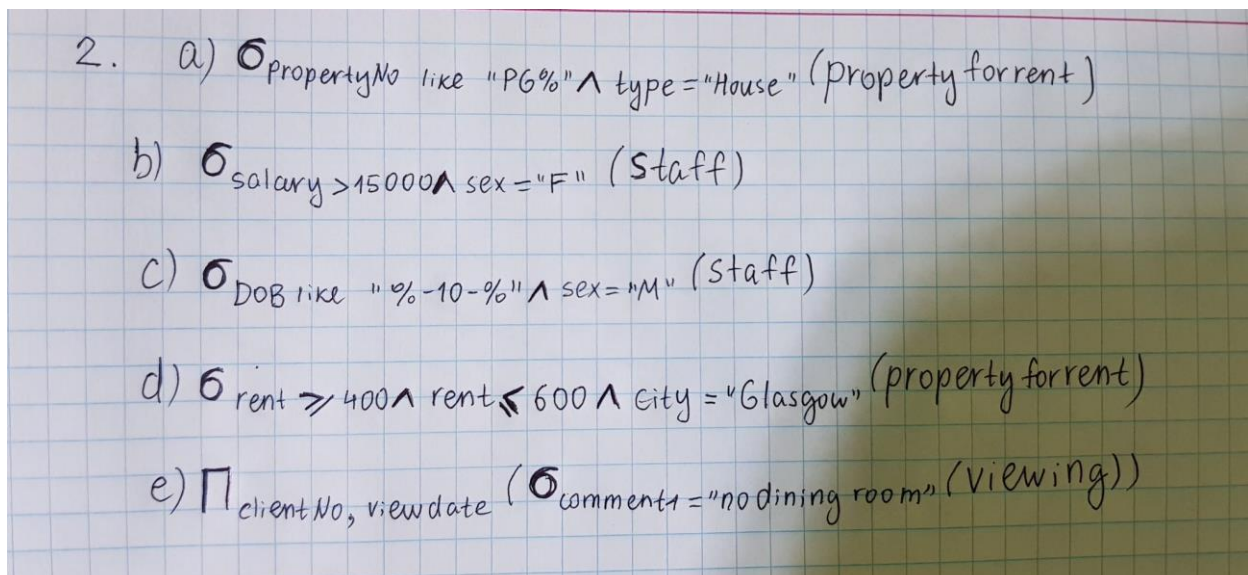 2. a) σ propertyNo like "PG%" ∧ type = "House" (property for rent)
b) σ salary > 15000 ∧ sex = "F" (Staff)
c) σ DOB like "%-10-%" ∧ sex = "M" (Staff)
d) σ rent ⩾ 400 ∧ rent ⩽ 600 ∧ city = "Glasgow" (property for rent)
e) Π clientNo, viewdate (σ comment1 = "no dining room" (Viewing))